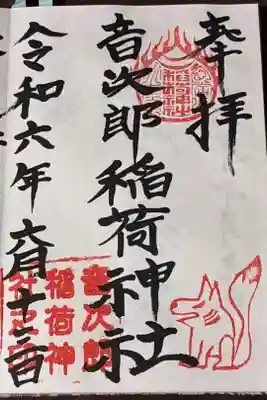 奉拝
音次郎稲荷神社
令和六年六月十三日
音次郎
稲荷神